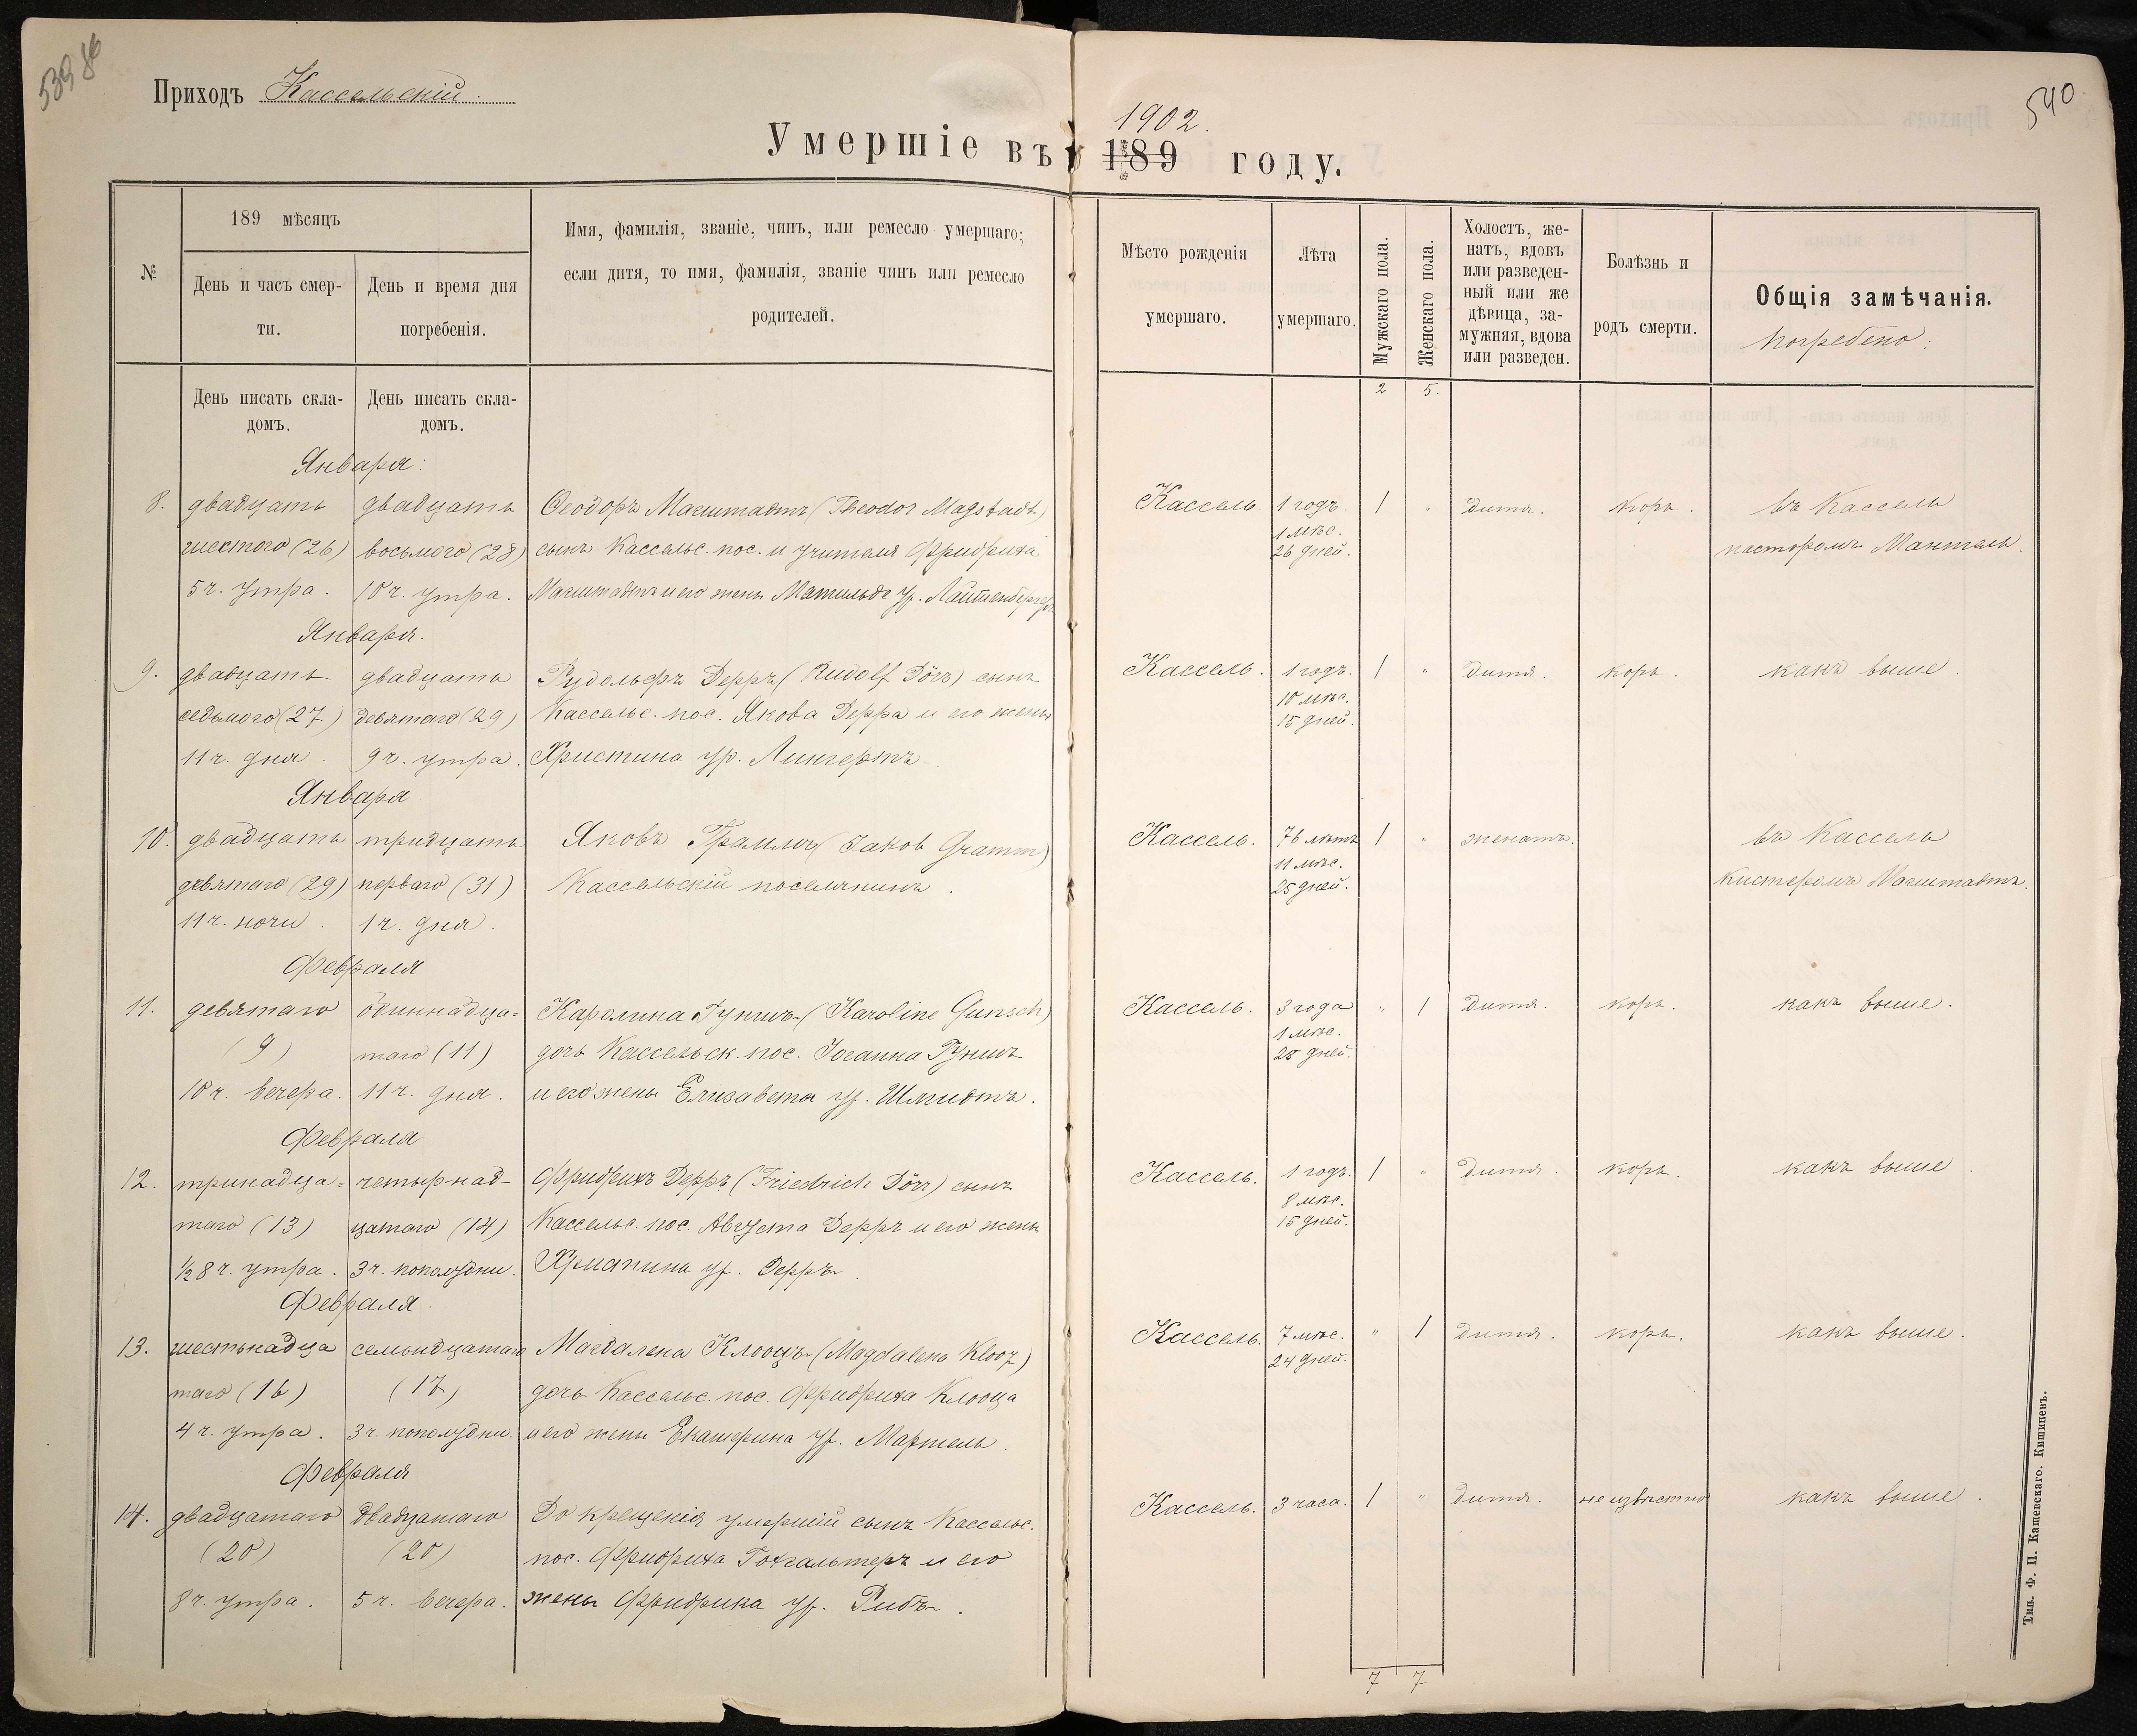 539 86
Приходъ Кассельскій.
540
1902.
Умершіе въ 189 году.
№
189 мѣсяцъ
День и часъ смер-
ти.
День и время дня
погребенія.
Имя, фамилія, званіе, чинъ, или ремесло умершаго;
если дитя, то имя, фамилія, званіе чинъ или ремесло
родителей.
Мѣсто рожденія
умершаго.
Лѣта
умершаго.
Мужскаго пола.
Женскаго пола.
Холостъ, же-
натъ, вдовъ
или разведен-
ный или же
дѣвица, за-
мужняя, вдова
или разведен.
Болѣзнь и
родъ смерти.
Общія замѣчанія.
погребено:
День писать скла-
домъ.
День писать скла-
домъ.
2 5.
Января:
8. двадцать двадцать Ѳеодоръ Магштадтъ (Theodor Magstadt) Кассель. 1 годъ. 1 " дитя. корь. въ Кассель
шестого (26) восьмого (28) сынъ Кассельс. пос. и учителя Фридриха 1 мѣс. пасторомъ Мантель.
26 дней.
5 ч. утра. 10 ч. утра. Магштадтъ и его жены Матильде ур.
Января.
9. двадцать двадцать Рудольфъ Дерръ (Rudolf Dörr) сынъ Кассель. 1 годъ. 1 " дитя. корь. какъ выше.
седьмого (27) девятаго (29) Кассельс. пос. Якова Дерра и его жены 10 мѣс.
15 дней.
11 ч. дня. 9 ч. утра. Христина ур. Лингертъ.
Января
10. двадцать тридцать Яковъ Граммъ (Jakob Gramm) Кассель. 76 лѣтъ 1 " женатъ. въ Кассель
девятаго (29) перваго (31) Кассельскій поселянинъ. 11 мѣс. кистеромъ Магштадтъ.
25 дней.
11 ч. ночи. 1 ч. дня.
Февраля
11. девятаго одиннадца- Каролина Гуншъ (Karoline Gunsch) Кассель. 3 года " 1 дитя. корь. какъ выше.
(9) таго (11) дочь Кассельск. пос. Іоганна Гуншъ 1 мѣс.
25 дней.
10 ч. вечера. 11 ч. дня. и его жены Елизавета ур. Шмидтъ.
Февраля
12. тринадца- четырнад- Фридрихъ Дерръ (Friedrich Dörr) сынъ Кассель. 1 годъ. 1 " дитя. корь. какъ выше.
таго (13) цатаго (14) Кассельс. пос. Августа Дерръ и его жены 8 мѣс.
15 дней.
½ 8 ч. утра. 3 ч. пополудни. ур. Дерръ.
Февраля.
13. шестьнадца семьнадцатаго Магдалена Клооцъ (Magdalena Klooz) Кассель. 7 мѣс. " 1 дитя. корь. какъ выше.
24 дней.
таго (16) (17) дочь Кассельс. пос. Фридриха Клооца
4 ч. утра. 3 ч. пополудни. и его жены Екатерина ур. Мартель.
Февраля
14. двадцатаго двадцатаго До крещенія умершій сынъ Кассельс. Кассель. 3 часа. 1 " дитя. неизвѣстно какъ выше.
(20) (20) пос. Фридриха Готгальтеръ и его
8 ч. утра. 5 ч. вечера. жены Фридрика ур. Рибъ.
7 7
Тип. Ф. П. Кашевскаго. Кишиневъ.